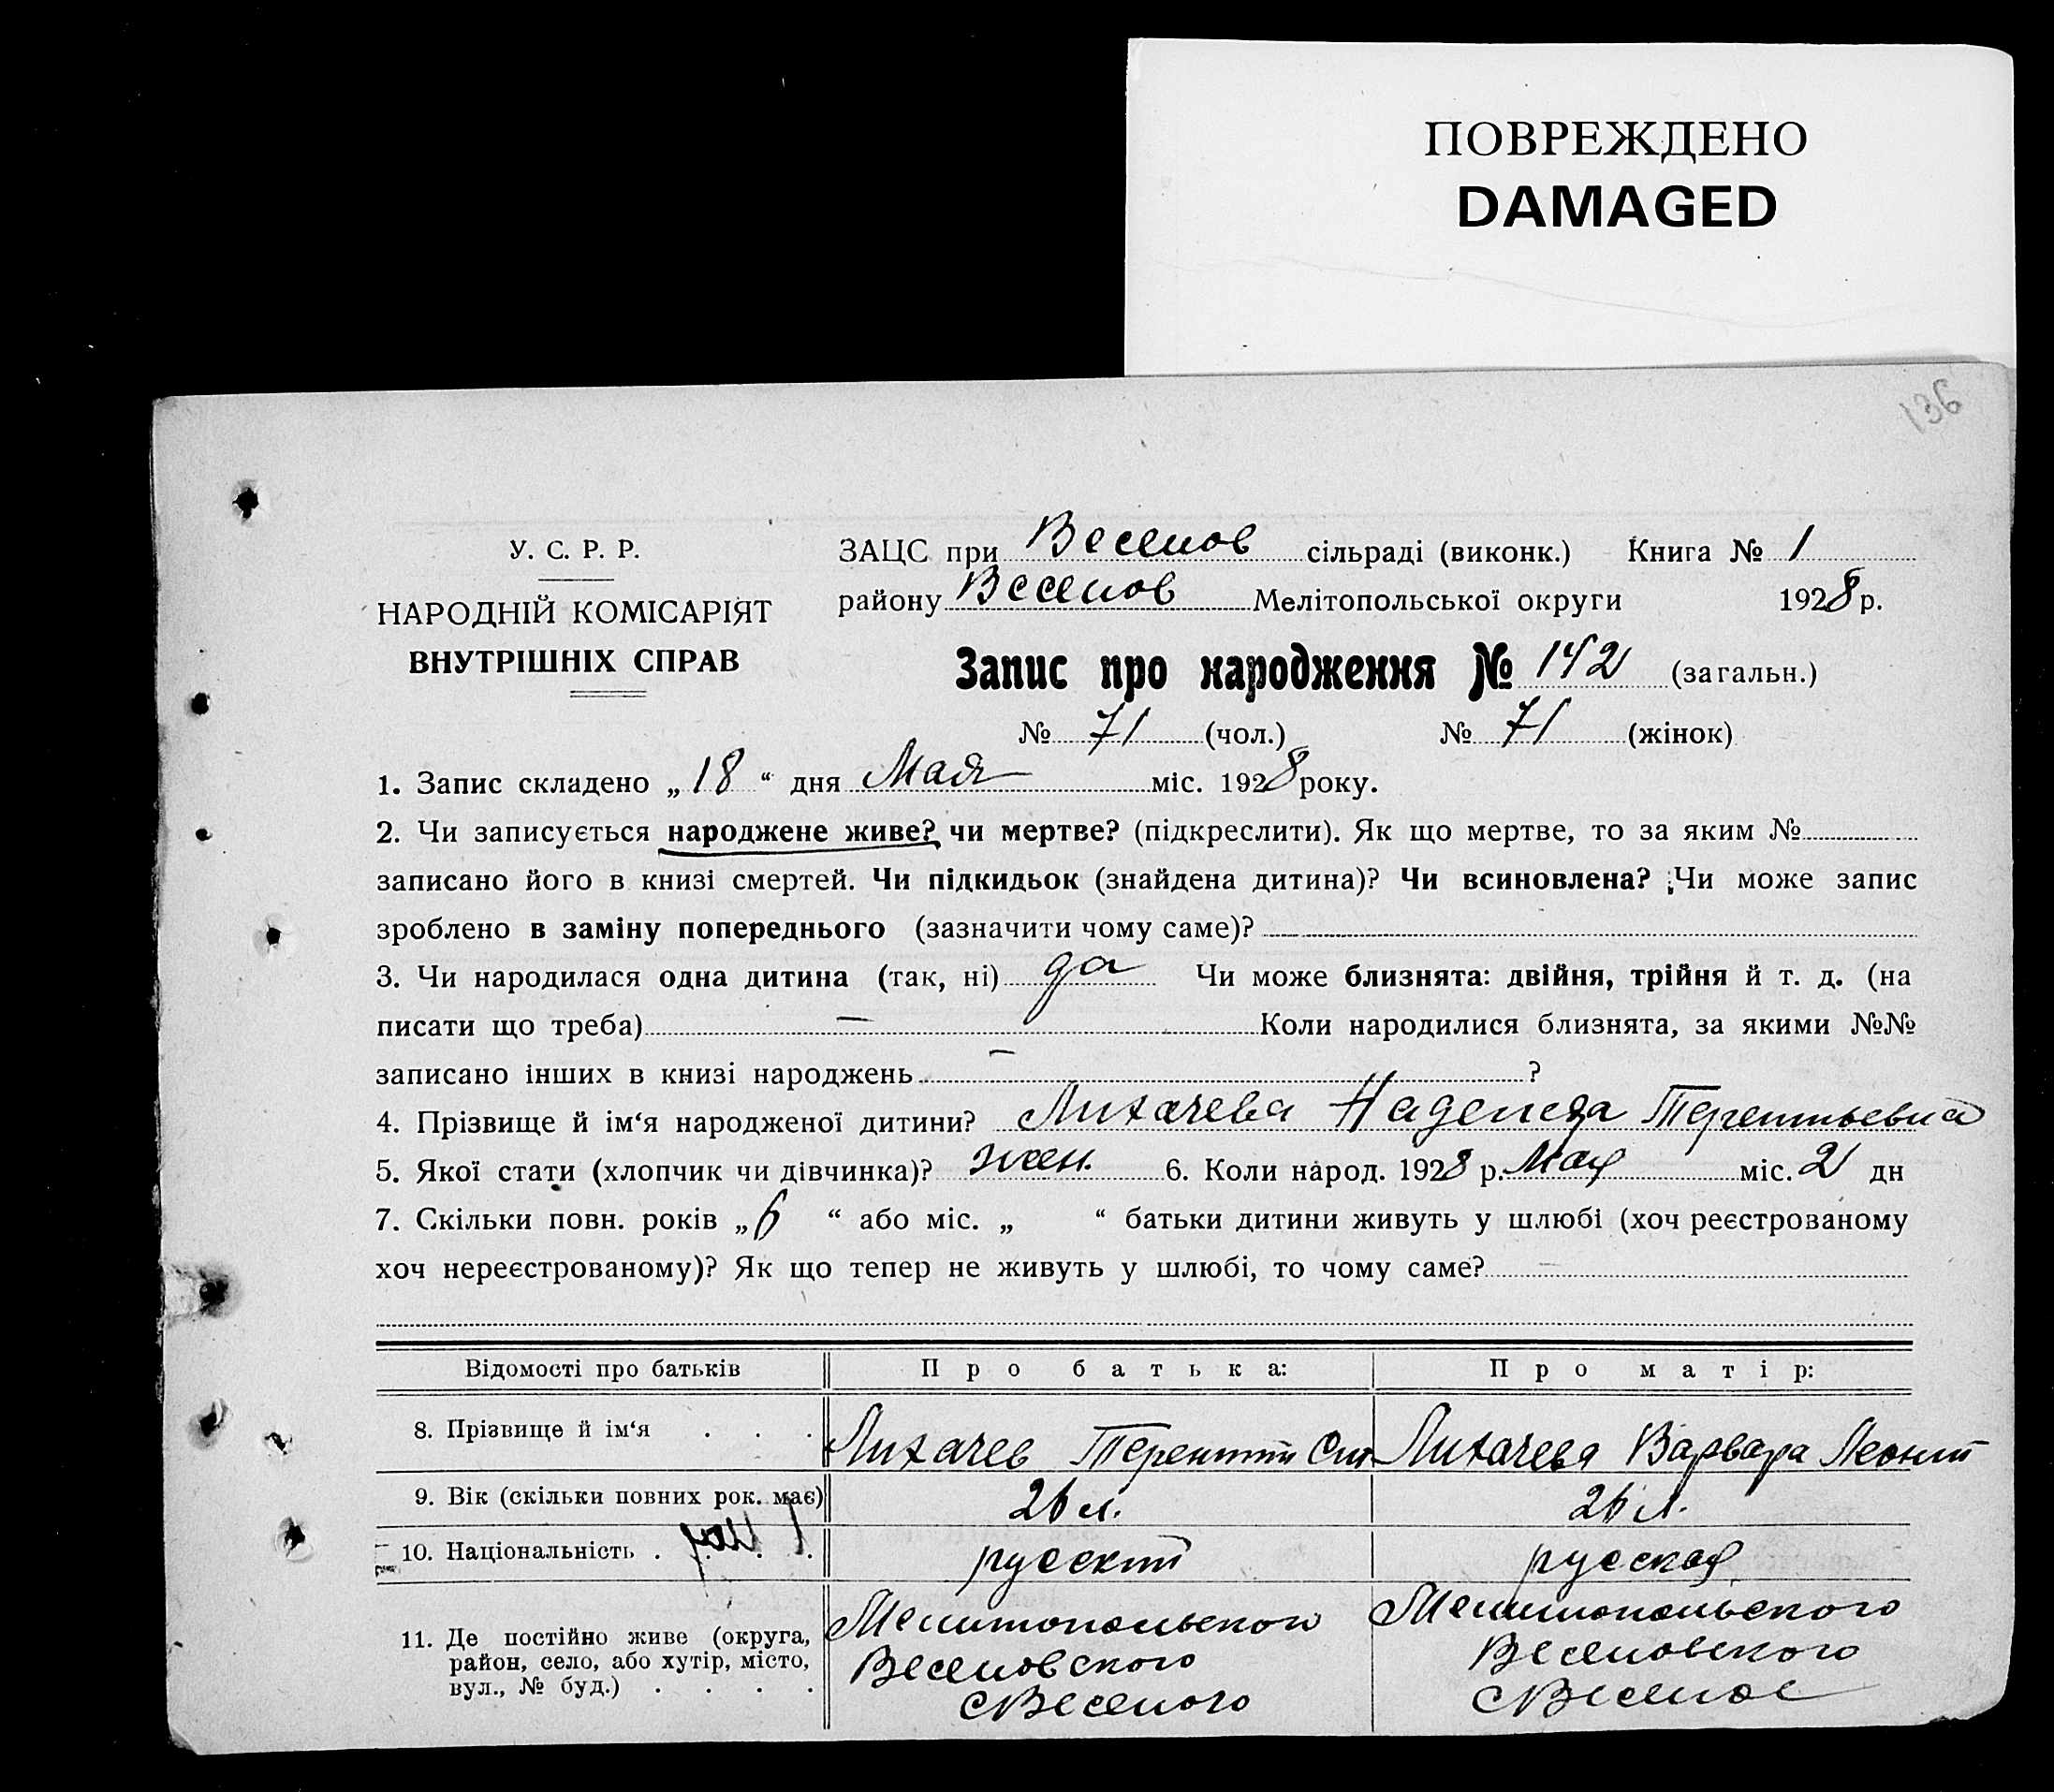 ПОВРЕЖДЕНО
DAMAGED
136
У. С. Р. Р.
НАРОДНІЙ КОМІСАРІЯТ
ВНУТРІШНІХ СПРАВ
ЗАЦС при Веселов сільраді (виконк.) Книга № 1
району Веселов Мелітопольської округи 1928 р.
Запис про народження № 142 (загальн.)
№ 71 (чол.) № 71 (жінок)
1. Запис складено „ 18 “ дня Мая міс. 1928 року.
2. Чи записується народжене живе? чи мертве? (підкреслити). Як що мертве, то за яким №
записано його в книзі смертей. Чи підкидьок (знайдена дитина)? Чи всиновлена? Чи може запис
зроблено в заміну попереднього (зазначити чому саме)?
3. Чи народилася одна дитина (так, ні) да Чи може близнята: двійня, трійня й т. д. (на
писати що треба) — Коли народилися близнята, за якими №№
записано інших в книзі народжень — ?
4. Прізвище й ім‘я народженої дитини? Лихачева Надежда Терентьевна
5. Якої стати (хлопчик чи дівчинка)? жен. 6. Коли народ. 1928 р. Мая міс. 2 дн
7. Скільки повн. років „ 6 “ або міс. „ “ батьки дитини живуть у шлюбі (хоч реєстрованому
хоч нереєстрованому)? Як що тепер не живуть у шлюбі, то чому саме? —
Відомості про батьків Про батька: Про матір:
8. Прізвище й ім‘я . . . Лихачев Терентий Лихачева Варвара Леонт
9. Вік (скільки повних рок. має) 26 л. 26 л.
10. Національність . . . . русский русская
11. Де постійно живе (округа, район, село, або хутір, місто, вул., № буд.) . . . .
Мелитопольского
Веселовского
с Веселого
Мелитопольского
Веселовского
с Веселое